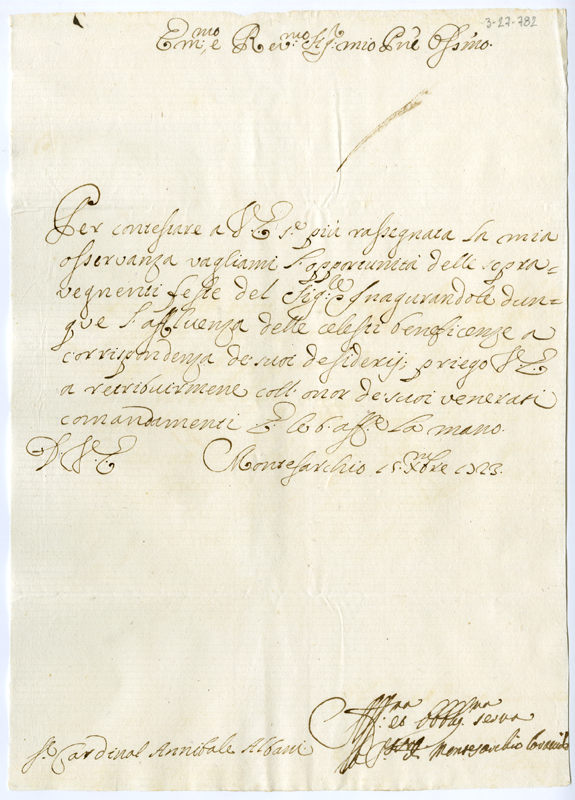 3-27-782
Em.mo e Rev.mo Sig.r mio P̃ne Oss̃mo.
Per contestare a V. E. se.e più rassegnata la mia
osservanza vagliami l'opportunità delli sopra=
vegnenti feste del Sig.le Inagurandole dun=
que l'affluenza delle celesti beneficenze a
corrispondenza de suoi desiderij; priego V. E.
a retribuirmene coll'onor de suoi venerati
comandamenti E. le b. aff.e La mano.
D. V. E. Montesarchio 15. Xm̃bre 1723.
Aff.ma
et Obblig.ma serva
Montesarchio
Sr. Cardinal Annibale Albani.